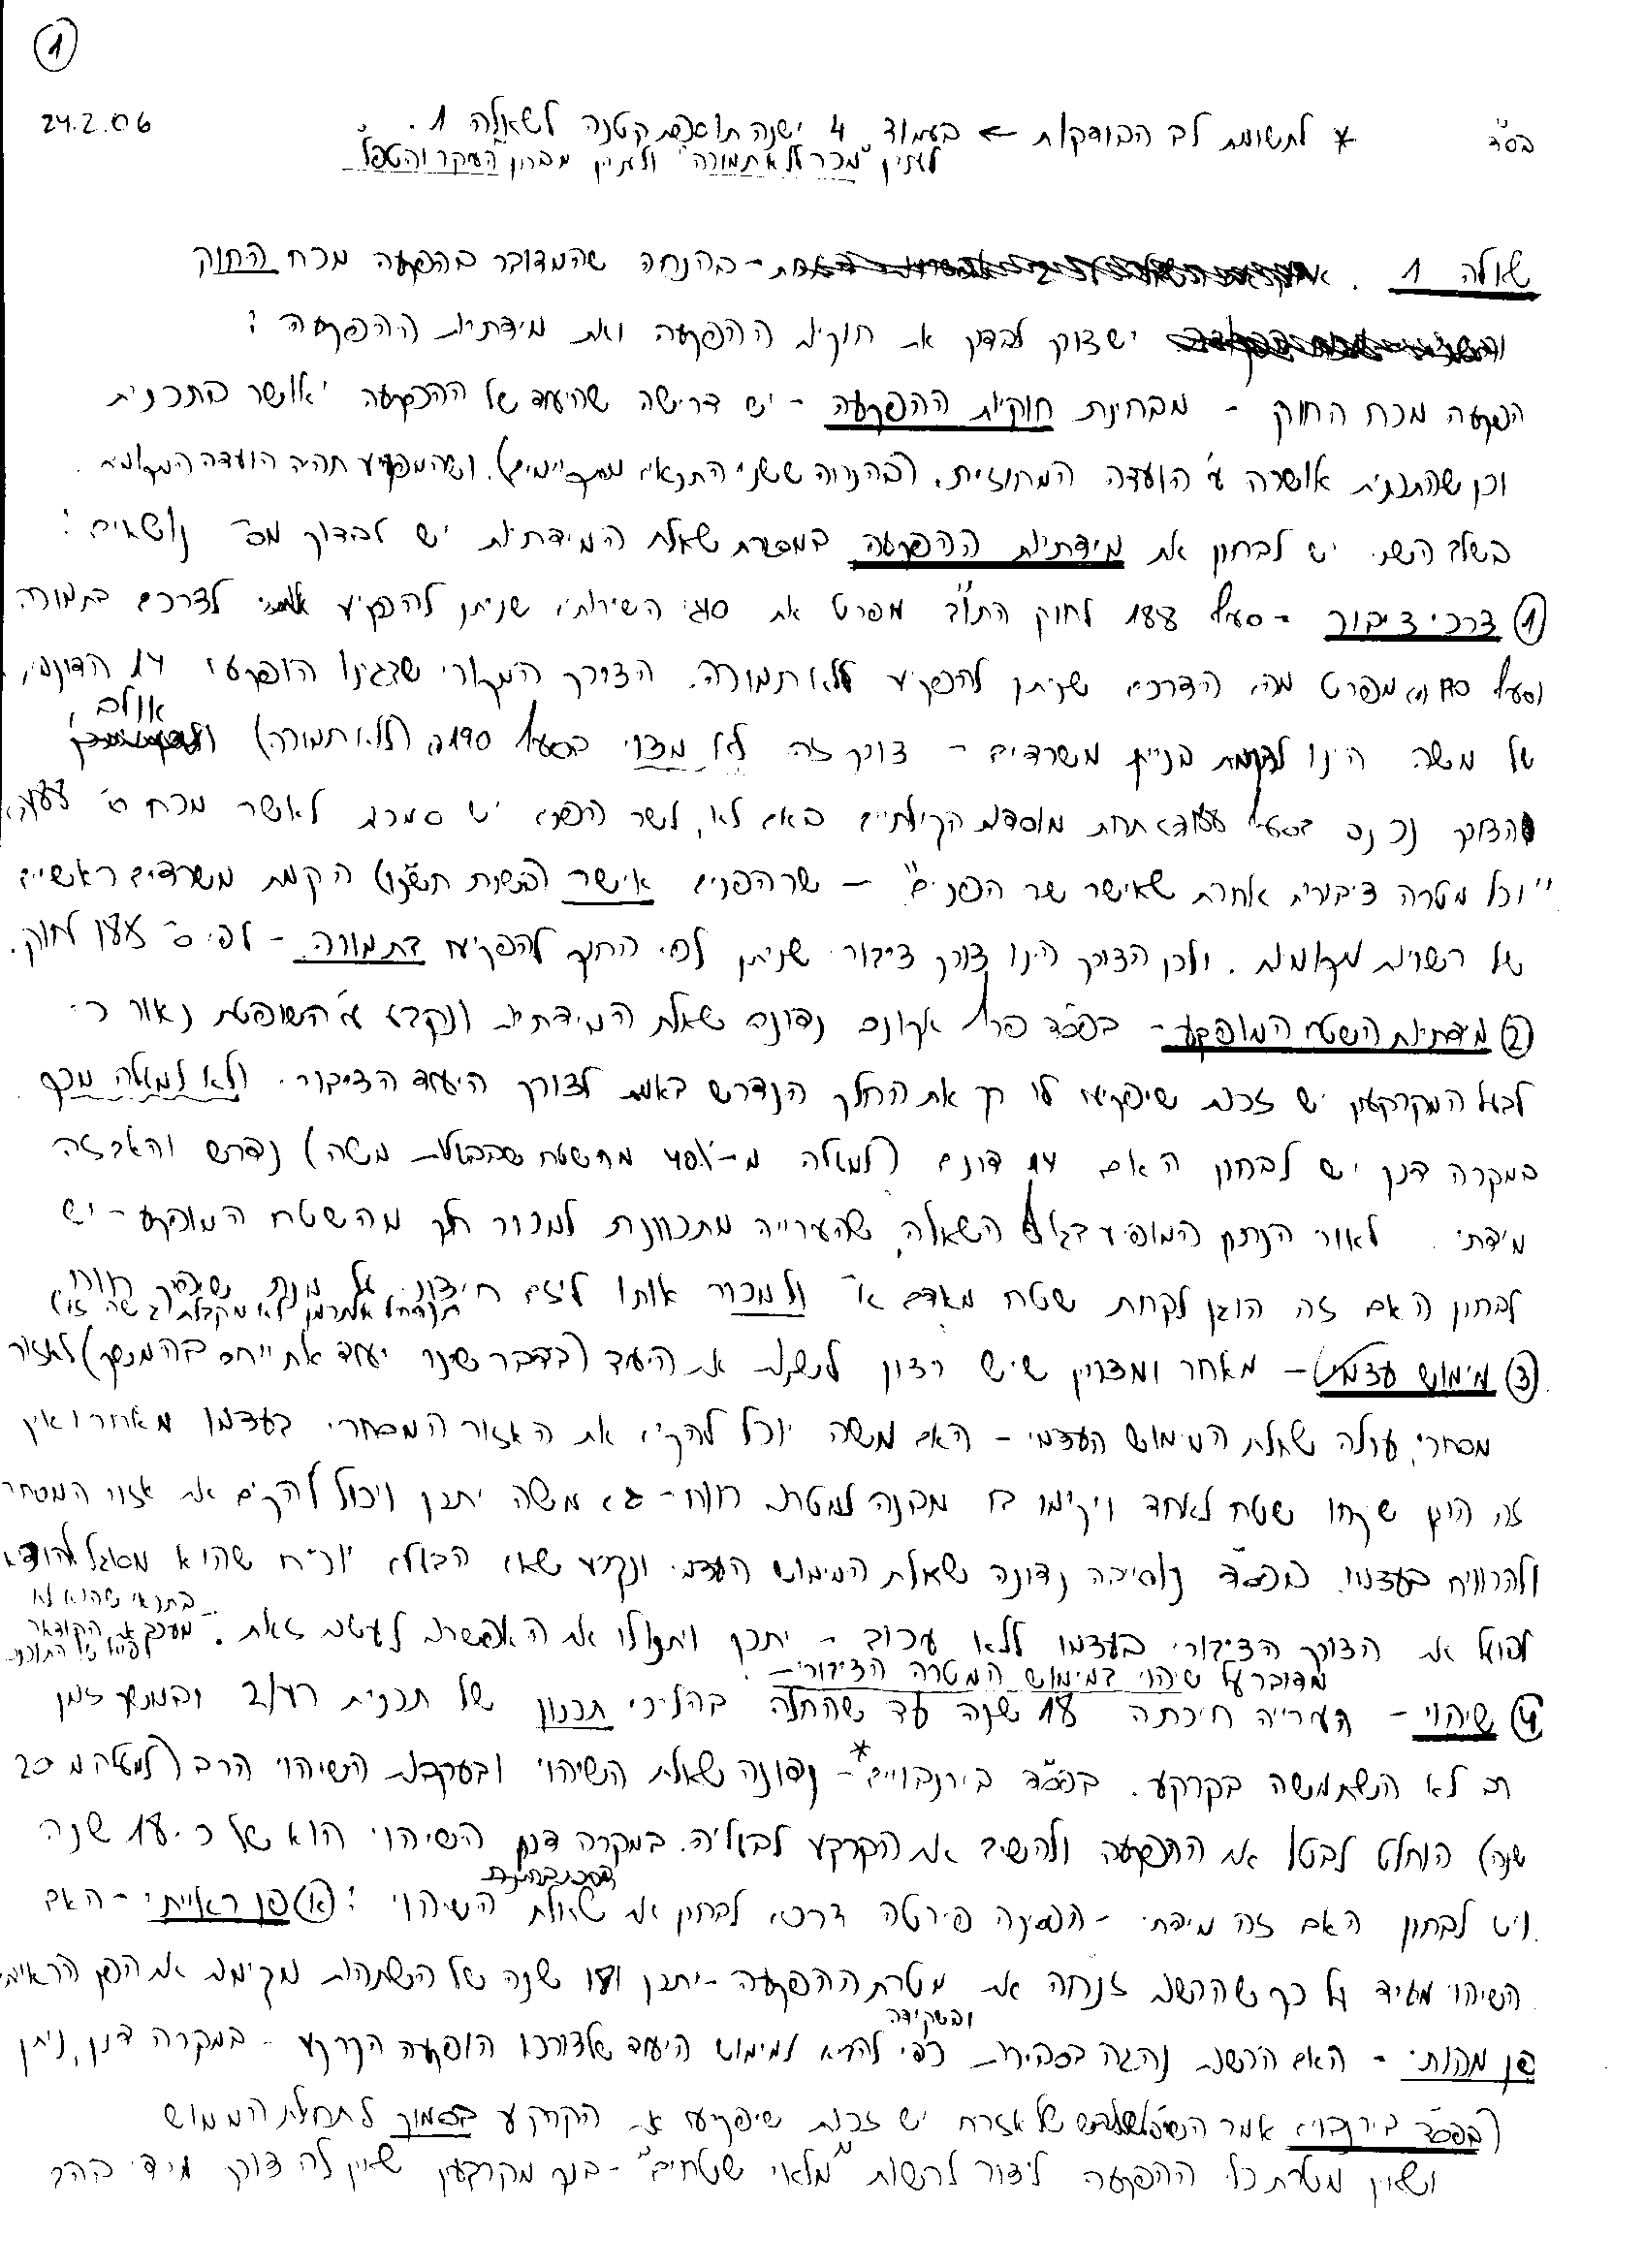 1
24.2.06
בס"ד
* לתשומת לב הבודק/ת ← בעמוד 4 ישנה תוספת קטנה לשאלה 1.
לענין "מכר ללא תמורה" ולענין מבחן "העקר והטפל"
שאלה 1. - בהנחה שהמדובר בהפקעה מכח החוק
יש צורך לבדוק את חוקיות ההפקעה ואת מידתיות ההפקעה:
הפקעה מכח החוק - מבחינת חוקיות ההפקעה - יש דרישה שהיעוד של ההפקעה יאושר בתכנית
וכן שהתכנית אושרה ע"י הועדה המחוזית. (בהנחה ששני התנאים מתקיימים). ושהמפקיע תהיה הועדה המקומית.
בשלב השני יש לבחון את מידתיות ההפקעה במסגרת שאלת המידתיות יש לבדוק מס' נושאים:
(1) צרכי ציבור - סעיף 188 לחוק התו"ב מפרט את סוגי השירותים שניתן להפקיע לצרכם בתמורה
וסעיף מפרט מהם הצרכים שניתן להפקיע ללא תמורה. הצורך המקורי שבגינו הופקעו 14 הדונם,
של משה הינו להקמת בניין משרדים - צורך זה לא מצוי בסעיף (ללא תמורה) אולם
הצורך נכנס בסעיף תחת מוסדות קהילתיים באם לא, לשר הפנים יש סמכות לאשר מכח ס'
"וכל מטרה ציבורית אחרת שאישר שר הפנים" - שר הפנים אישר בשנת הקמת משרדים ראשיים
של רשויות מקומיות. ולכן הצורך הינו צורך ציבורי שניתן לפי החוק להפקיע בתמורה - לפי ס' לחוק.
(2) מידתיות השטח המופקע - בפס"ד פרץ אקונס נדונה שאלת המידתיות ונקבע ע"י השופטת נאור כי
לבעל המקרקעין יש זכות שיפקיעו לו רק את החלק הנדרש באמת לצורך היעוד הציבורי ולא למעלה מכך.
במקרה דנן יש לבחון האם 14 דונם (למעלה מ-40% מהשטח שבבעלות משה) נדרש והאם זה
מידתי. לאור הנתון המופיע בגוף השאלה, שהעירייה מתכוונת למכור חלק מהשטח המופקע - יש
לבחון האם זה הוגן לקחת שטח מאדם א' ולמכור אותו ליזם חיצוני על מנת
(3) מימוש עצמי - מאחר ומצוין שיש רצון לשנות את היעוד (בדבר שינוי יעוד אתייחס בהמשך) לאזור
מסחרי, עולה שאלת המימוש העצמי - האם משה יוכל להקים את האזור המסחרי בעצמו מאחר ואין
זה הוגן שיקחו שטח לאחד ויקימו בו מבנה למטרת רווח - גם משה יתכן ויכול להקים את אזור המסחר
ולהרוויח בעצמו. בפס"ד נוסייבה נדונה שאלת המימוש העצמי ונקבע שאם הבעלים יוכיח שהוא מסוגל
לפעול את הצורך הציבורי בעצמו ללא עיכוב - יתכן ויתנו לו את האפשרות לעשות זאת. בתנאי שהוא לא
מדובר על שיהוי במימוש המטרה הציבורית -
(4) שיהוי - העירייה חיכתה 18 שנה עד שהחלה בהליכי תכנון של תכנית ובמשך זמן
רב לא השתמשה בקרקע. בפס"ד בירנבוים* - נדונה שאלת השיהוי ובעקבות השיהוי הרב (למעלה מ 20
שנה) הוחלט לבטל את ההפקעה ולהשיב את הקרקע לבעליה. במקרה דנן השיהוי הוא של כ-18 שנה
ויש לבחון האם זה מידתי - הפסיקה פירטה דרכים לבחון את שאלת השיהוי: (א) פן ראייתי - האם
השיהוי מעיד על כך שהרשות זנחה את מטרת ההפקעה - יתכן ו 18 שנה של השתהות מקיימות את הפן הראייתי
פן מהותי - האם הרשות נהגה בסבירות ובשקידה כדי להביא למימוש היעוד שלצורכו הופקעה הקרקע - במקרה דנן, ניתן
(בפס"ד בירנבוים אמר השופט של אזרח יש זכות שיפקיעו את הקרקע בסמוך לתחילת המימוש
ושאין מטרת כלי ההפקעה ליצור לרשות "מלאי שטחים" - בנק מקרקעין שאין לה צורך מידי בהם